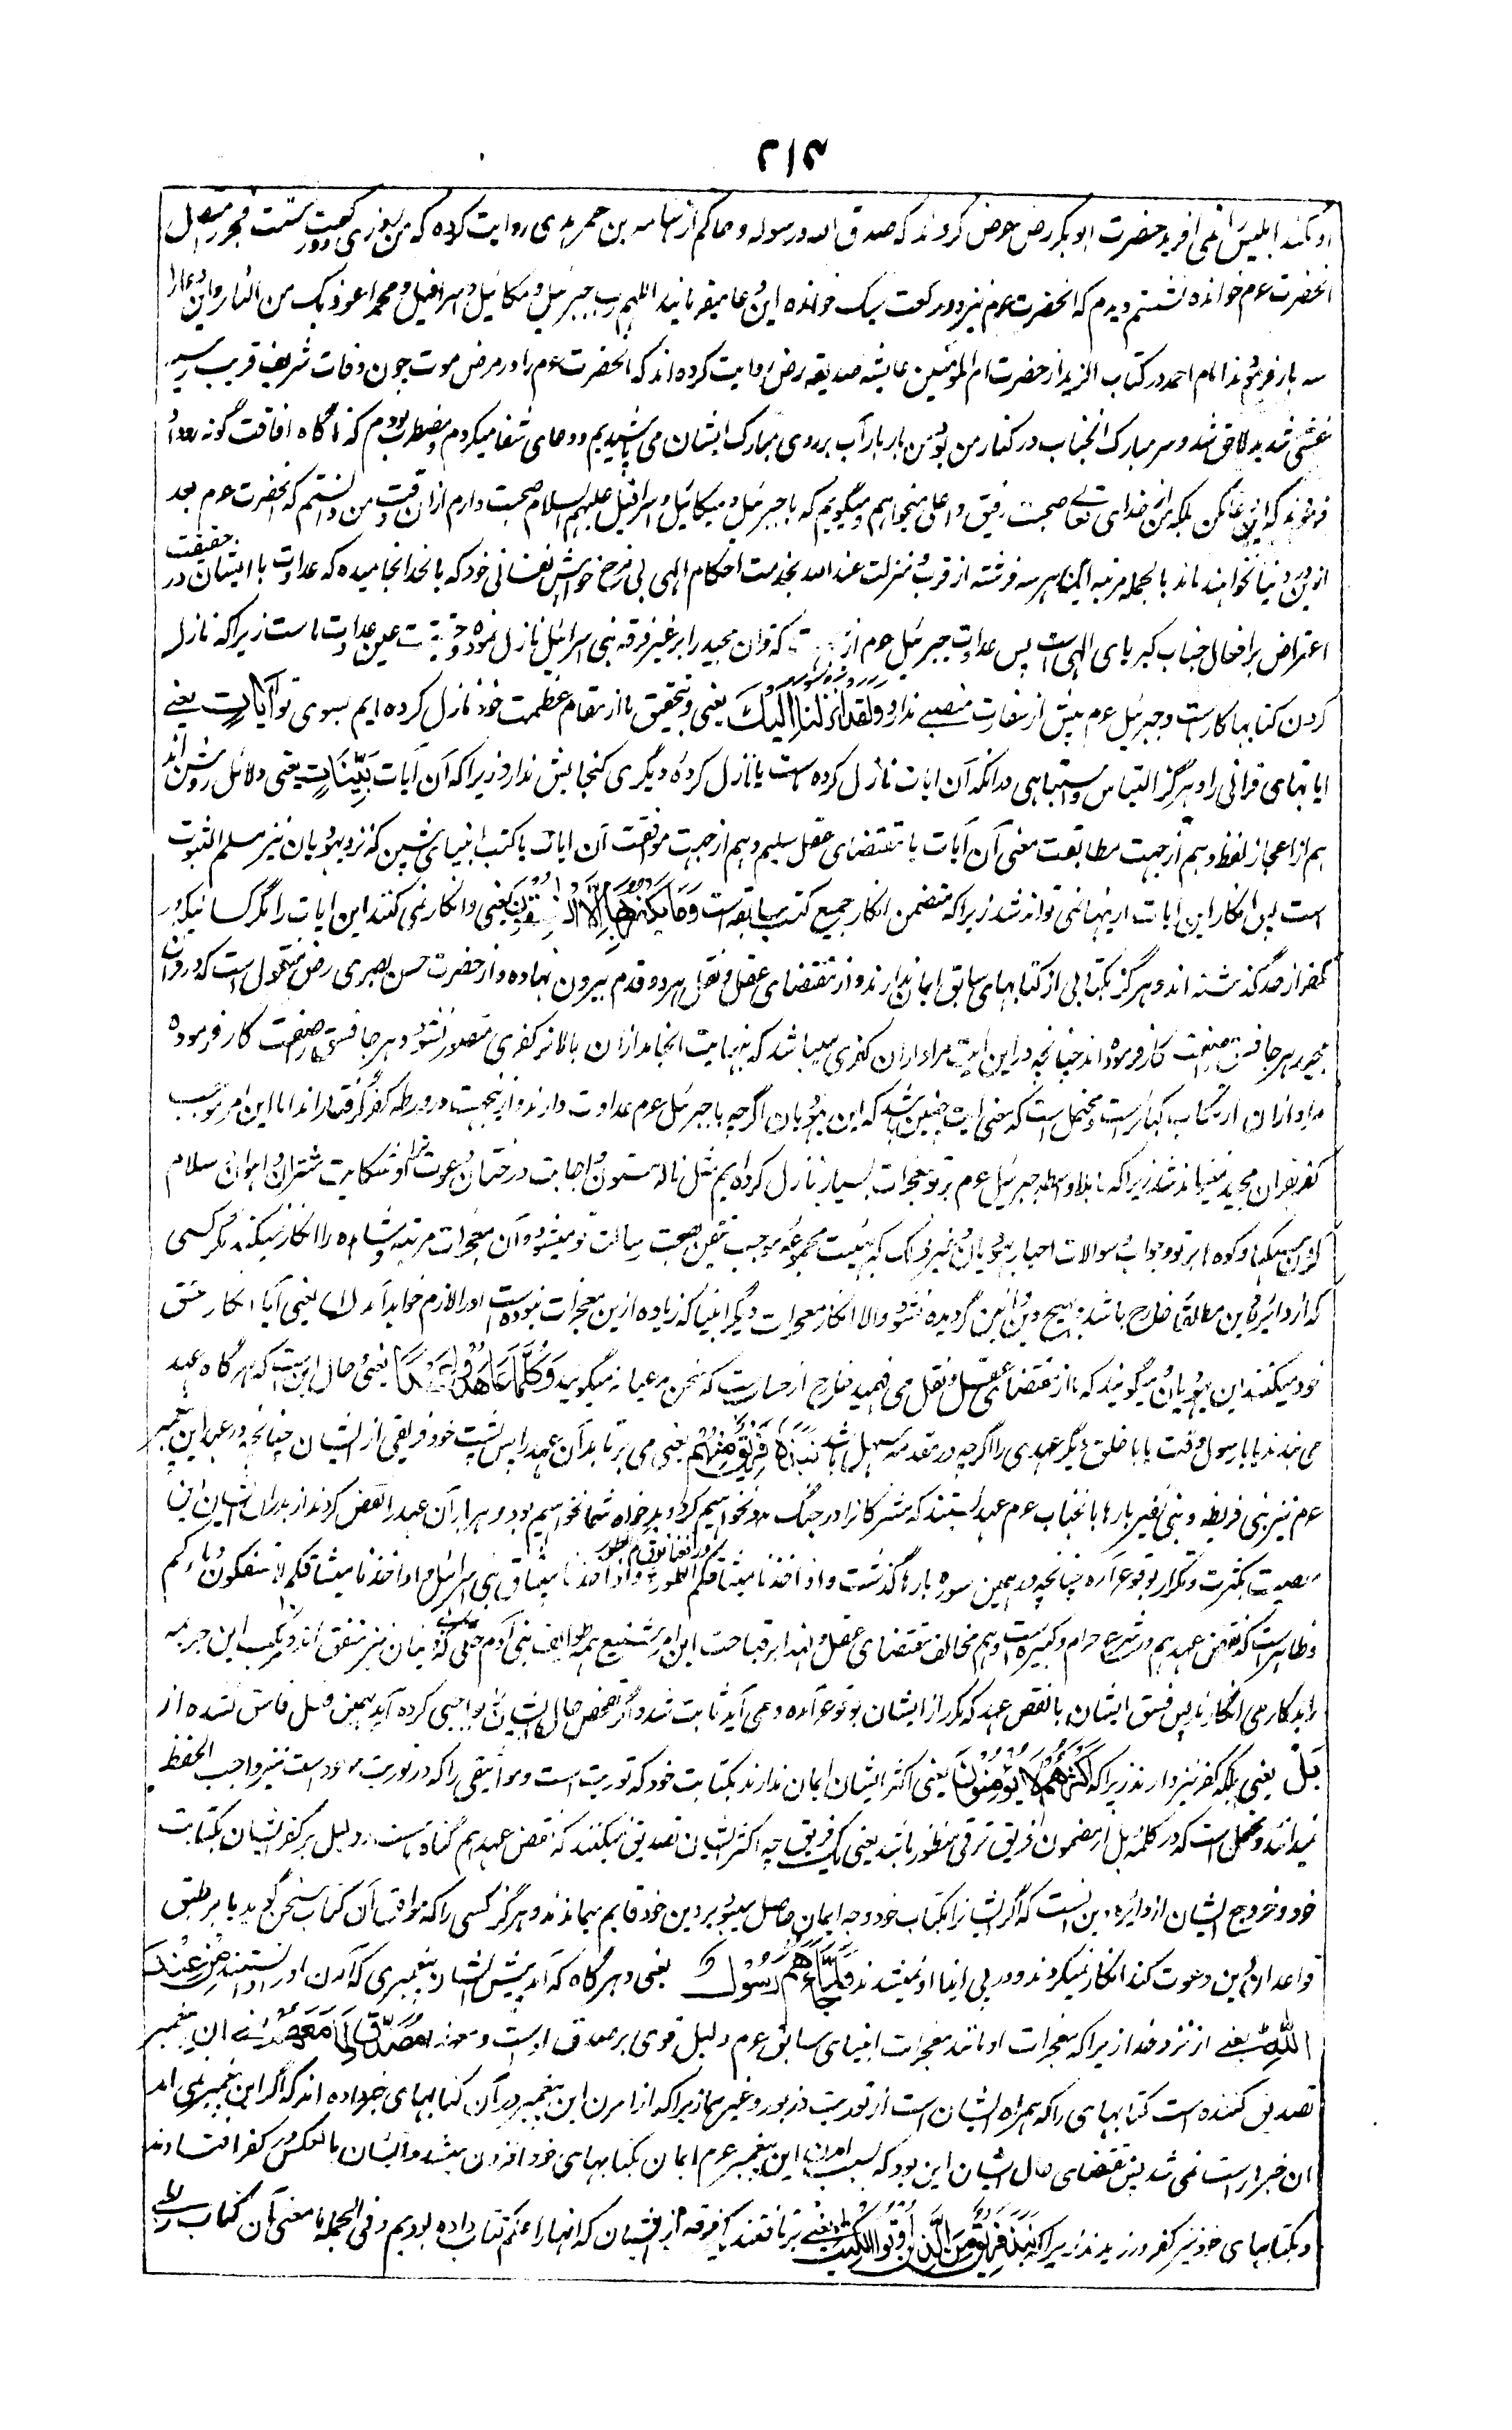 ۲۱۴
او نکند ابلیس را نمی آفرید حضرت ابو بکر رض عرض کردند که صدق الله و رسوله و حاکم از اسامه بن عمیر هذلی روایت کرده که من روزی دو رکعت سنت فجر متصل
آنحضرت عم خوانده نشستم دیدم که آنحضرت عم نیز دو رکعت سبک خوانده این دعا میفرمایند اللهم رب جبرئیل و میکائیل و اسرافیل و محمد اعوذ بک من النار و این دعا را
سه بار فرمودند امام احمد در کتاب الزهد از حضرت ام المؤمنین عایشه صدیقه رض روایت کرده اند که آنحضرت عم را در مرض موت چون وفات شریف قریب رسید
غشی شدید لاحق شد و سر مبارک آنجناب در کنار من بود من بار بار آب بر روی مبارک ایشان می پاشیدم و دعای شفا میکردم و مضطرب بودم که ناگاه افاقت گونه رو داد
فرمودند که این دعا مکن بلکه من از خدای تعالی صحبت رفیق اعلی میخواهم و میگویم که با جبرئیل و میکائیل و اسرافیل علیهم السلام صحبت دارم از آن وقت من دانستم که آنحضرت عم بعد
ازین در دنیا نخواهند ماند بالجمله مرتبه این هر سه فرشته از قرب و منزلت عند الله بخدمت احکام الهی بی مزج خواهش نفسانی خود که بآنحد انجامیده که عداوت با ایشان در حقیقت
اعتراض بر افعال جناب کبریای الهی است پس عداوت جبرئیل عم ازین جهت که قرآن مجید را بر غیر فرقه بنی اسرائیل نازل نموده در حقیقت عین عداوت ماست زیرا که نازل
کردن کتابها کار ماست و جبرئیل عم بیش از سفارت منصبی ندارد و لقد انزلنا الیک یعنی و بتحقیق ما از مقام عظمت خود نازل کرده ایم بسوی تو آیات یعنی
آیاتهای قرآنی را و هرگز التباس و اشتباهی در آنکه آن آیات نازل کرده ماست یا نازل کرده دیگری گنجایش ندارد زیرا که آن آیات بینات یعنی دلائل روشن اند
هم از اعجاز لفظ و هم از جهت مطابقت معنی آن آیات با مقتضای عقل سلیم و هم از جهت موافقت آن آیات با کتب انبیای پیشین که نزد یهودیان نیز مسلم الثبوت
است پس انکار این آیات از ینها نمی تواند شد زیرا که متضمن انکار جمیع کتب سابقه است و ما یکفر بها الا الفسقون یعنی و انکار نمی کنند این آیات را مگر کسانیکه در
کفر از حد گذشته اند و هرگز بکتابی از کتابهای سابق ایمان ندارند و از مقتضای عقل و نقل هر دو قدم بیرون نهاده و از حضرت حسن بصری رض منقول است که در قرآن
مجید هر جا فسق را صفت کافر فرموده اند چنانچه در این آیت مراد از آن کفری میباشد که به نهایت انجامد از آن بالاتر کفری متصور نشود و هر جا فسق را صفت کار فرموده
مراد از آن ارتکاب کبائر است و محتمل است که معنی آیت چنین باشد که این یهودیان اگرچه با جبرئیل عم عداوت دارند و ازینجهت در ورطه کفر گرفتار اند اما این امر موجب
کفر بقرآن مجید نمیتواند شد زیرا که ما بلا واسطه جبرئیل عم بر تو معجزات بسیار نازل کرده ایم مثل ناله ستون و اجابت درختان دعوت ترا و شکایت شتران و آهوان و سلام
کردن سنگها و کوه ها بر تو و جواب سوالات احبار یهودیان و غیر ذلک که بهیئت مجموعی موجب تیقن صحت رسالت تو میشود و آن معجزات مرتبه مشاهده را انکار نمیکند مگر کسی
که از دائره دین مطلقا خارج باشد بهیچ دین و آئین گردیده نشود و الا انکار معجزات دیگر انبیا که زیاده ازین معجزات نبوده است او را لازم خواهد آمد ا یعنی آیا انکار فسق
خود میکنند این یهودیان و میگویند که ما از مقتضای عقل و نقل می فهمید خارج از حساب است که سخن مدعیانه میگویید و کلما عاهدوا عهدا یعنی و حال این است که هرگاه عهد
می بندند یا با رسول وقت یا با خلق دیگر عهدی را اگرچه در مقدمه سهل باشد نبذه فریق منهم یعنی می پرتابد آن عهد را پس پشت خود فریقی از ایشان چنانچه در عهد این پیغمبر
عم نیز بنی قریظه و بنی نضیر بارها با آنجناب عم عهد بستند که مشرکان را در جنگ مدد نخواهیم کرد و بدخواه شما نخواهیم بود و هر بار آن عهد را نقض کردند از پدران ایشان این
معصیت بکثرت و تکرار بوقوع آمده چنانچه در همین سوره بارها گذشت و اذ اخذنا میثاقکم و رفعنا فوقکم الطور و اذ اخذنا میثاق بنی اسرائیل و اذ اخذنا میثاقکم لا تسفکون دماءکم
و ظاهر است که نقض عهد هم در شرع حرام و کبیره است و هم مخالف مقتضای عقل و لهذا بر قباحت این امر شنیع همه طوایف بنی آدم حتی که بیدینان نیز متفق اند و مرتکب این جریمه
را بدکار می انگارند پس فسق ایشان بانقض عهد که مکرر از ایشان بوقوع آمده و می آید ثابت شد و اگر تفحص حال ایشان بواجبی کرده آید همین فسل فاش نشده از
بل یعنی بلکه کفر نیز دارند زیرا که اکثرهم لا یؤمنون یعنی اکثر ایشان ایمان ندارند بکتاب خود که توریت است و مواثیقی را که در توریت موجود است نیز واجب الحفظ
نمیدانند و محتمل است که در کلمه بل از مضمون فریق ترقی منظور باشد یعنی یک فریق چه اکثر ایشان تصدیق نمیکنند که نقض عهد هم گناه است و دلیل بر کفر ایشان بکتاب
خود و خروج ایشان از دائره دین اینست که اگر ایشان را بکتاب خود وجه ایمان حاصل میبود بر دین خود قایم میماندند و هرگز کسی را که موافق آن کتاب سخن گوید یا بر طبق
قواعد آن دین دعوت کند انکار نمیکردند و در پی ایذا او نمیشدند و لما جاءهم رسول یعنی و هرگاه که آمد پیش ایشان پیغمبری که آمدن او را دانستند من عند
الله یعنی از نزد خدا زیرا که معجزات او مانند معجزات انبیای سابق عم دلیل قوی بر صدق اوست و معهذا مصدق لما معهم یعنی آن پیغمبر
تصدیق کننده است کتابهای را که همراه ایشان است از توریت و زبور و غیرهما زیرا که از آمدن این پیغمبر در آن کتابهای خبر داده اند که اگر این پیغمبر نمی آمد
آن خبر راست نمی شد پس مقتضای حال ایشان این بود که بسبب آمدن این پیغمبر عم ایمان بکتابهای خود افزون میشد و ایشان بالعکس در کفر افتادند
و بکتابهای خود نیز کفر ورزیدند زیرا که نبذ فریق من الذین اوتوا الکتب یعنی بر تافتند یک فرقه از ایشان که آنها را علم کتاب داده بودیم و فی الجمله با معنی آن کتاب راه